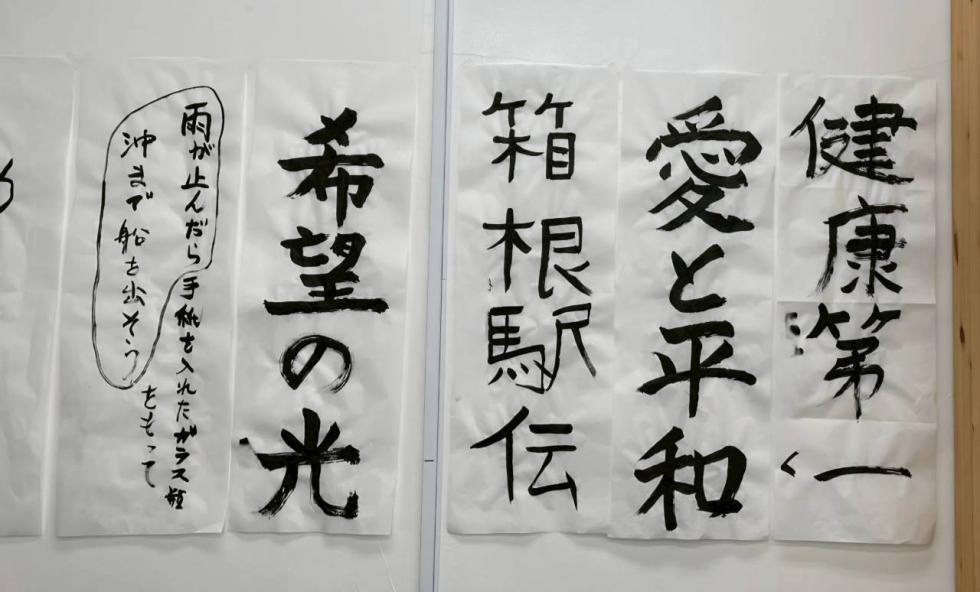 健康第一
愛と平和
箱根駅伝
希望の光
雨が止んだら手紙を入れたガラス瓶
をもって
沖まで船を出そう